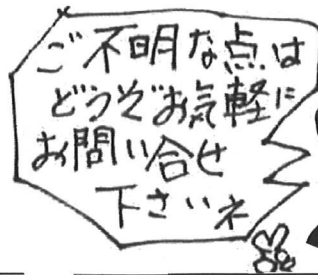 ご不明な点は
どうぞお気軽に
お問い合せ
下さいネ